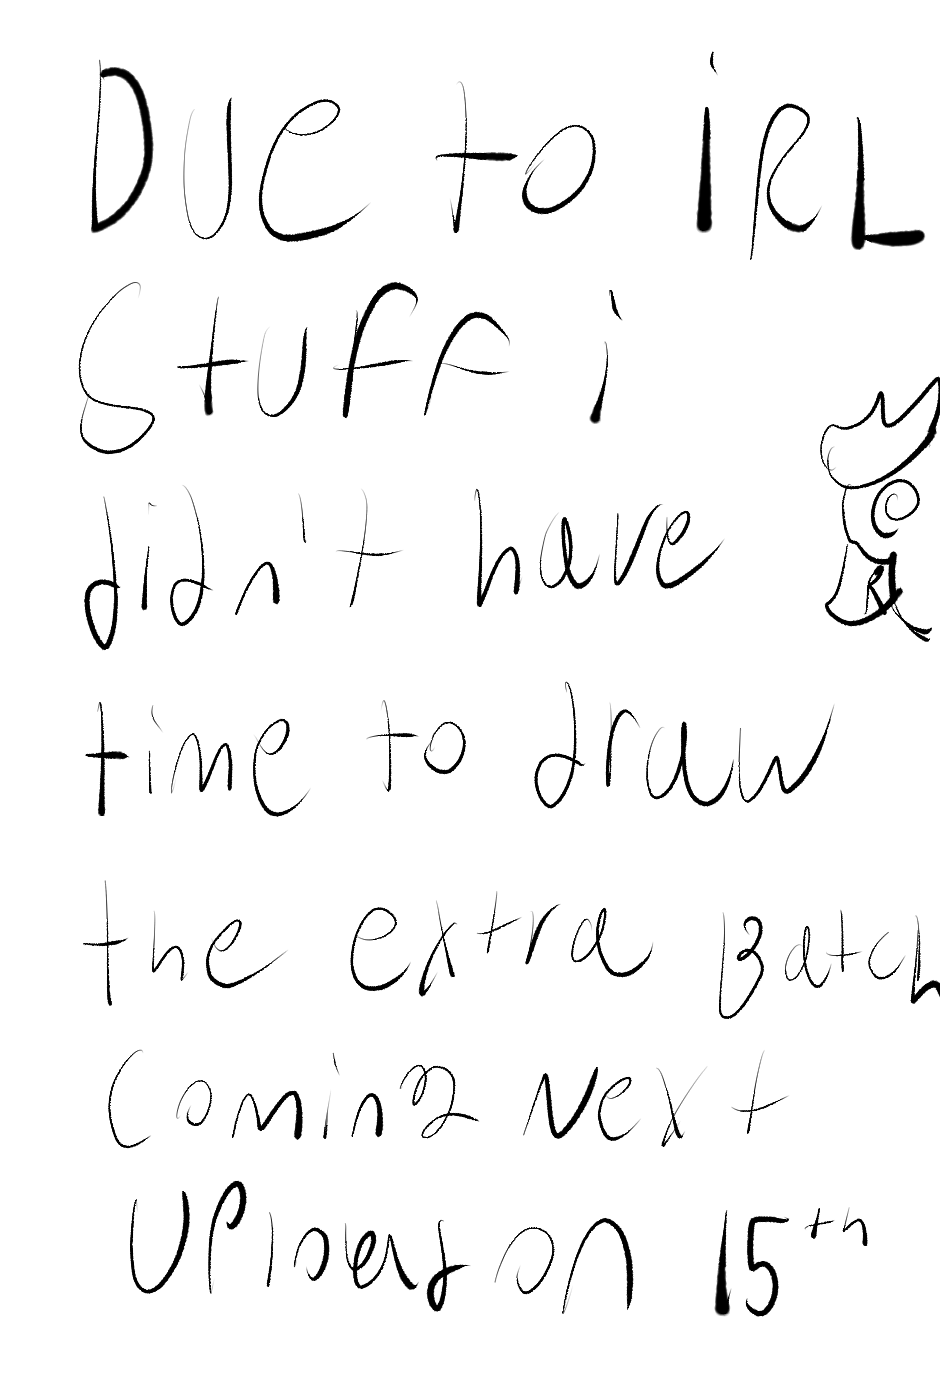 Due to iRL
Stuff i
didn't have
time to draw
the extra Batch
Coming Next
Upload on 15th